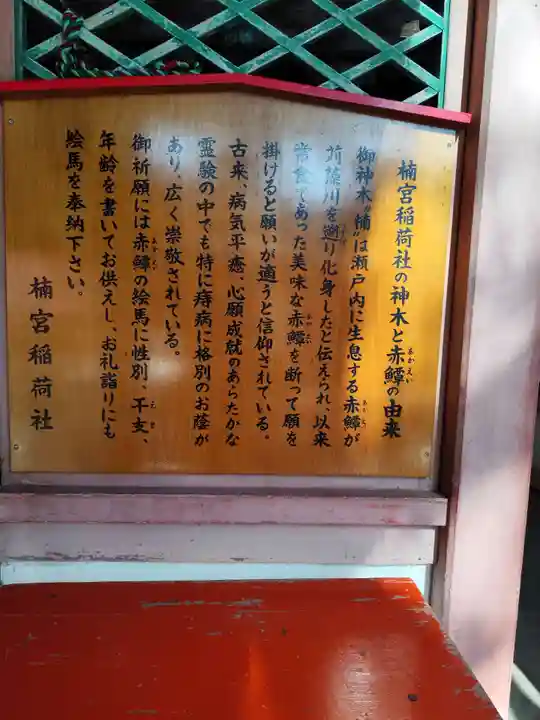 楠宮稲荷社の神木と赤鱏の由来
御神木“楠”は瀬戸内に生息する赤鱏が
苅藻川を遡り化身したと伝えられ、以来
常食であった美味な赤鱏を断って願を
掛けると願いが適うと信仰されている。
古来、病気平癒、心願成就のあらたかな
霊験の中でも特に痔病に格別のお蔭が
あり、広く崇敬されている。
御祈願には赤鱏の絵馬に性別、干支、
年齢を書いてお供えし、お礼詣りにも
絵馬を奉納下さい。
楠宮稲荷社